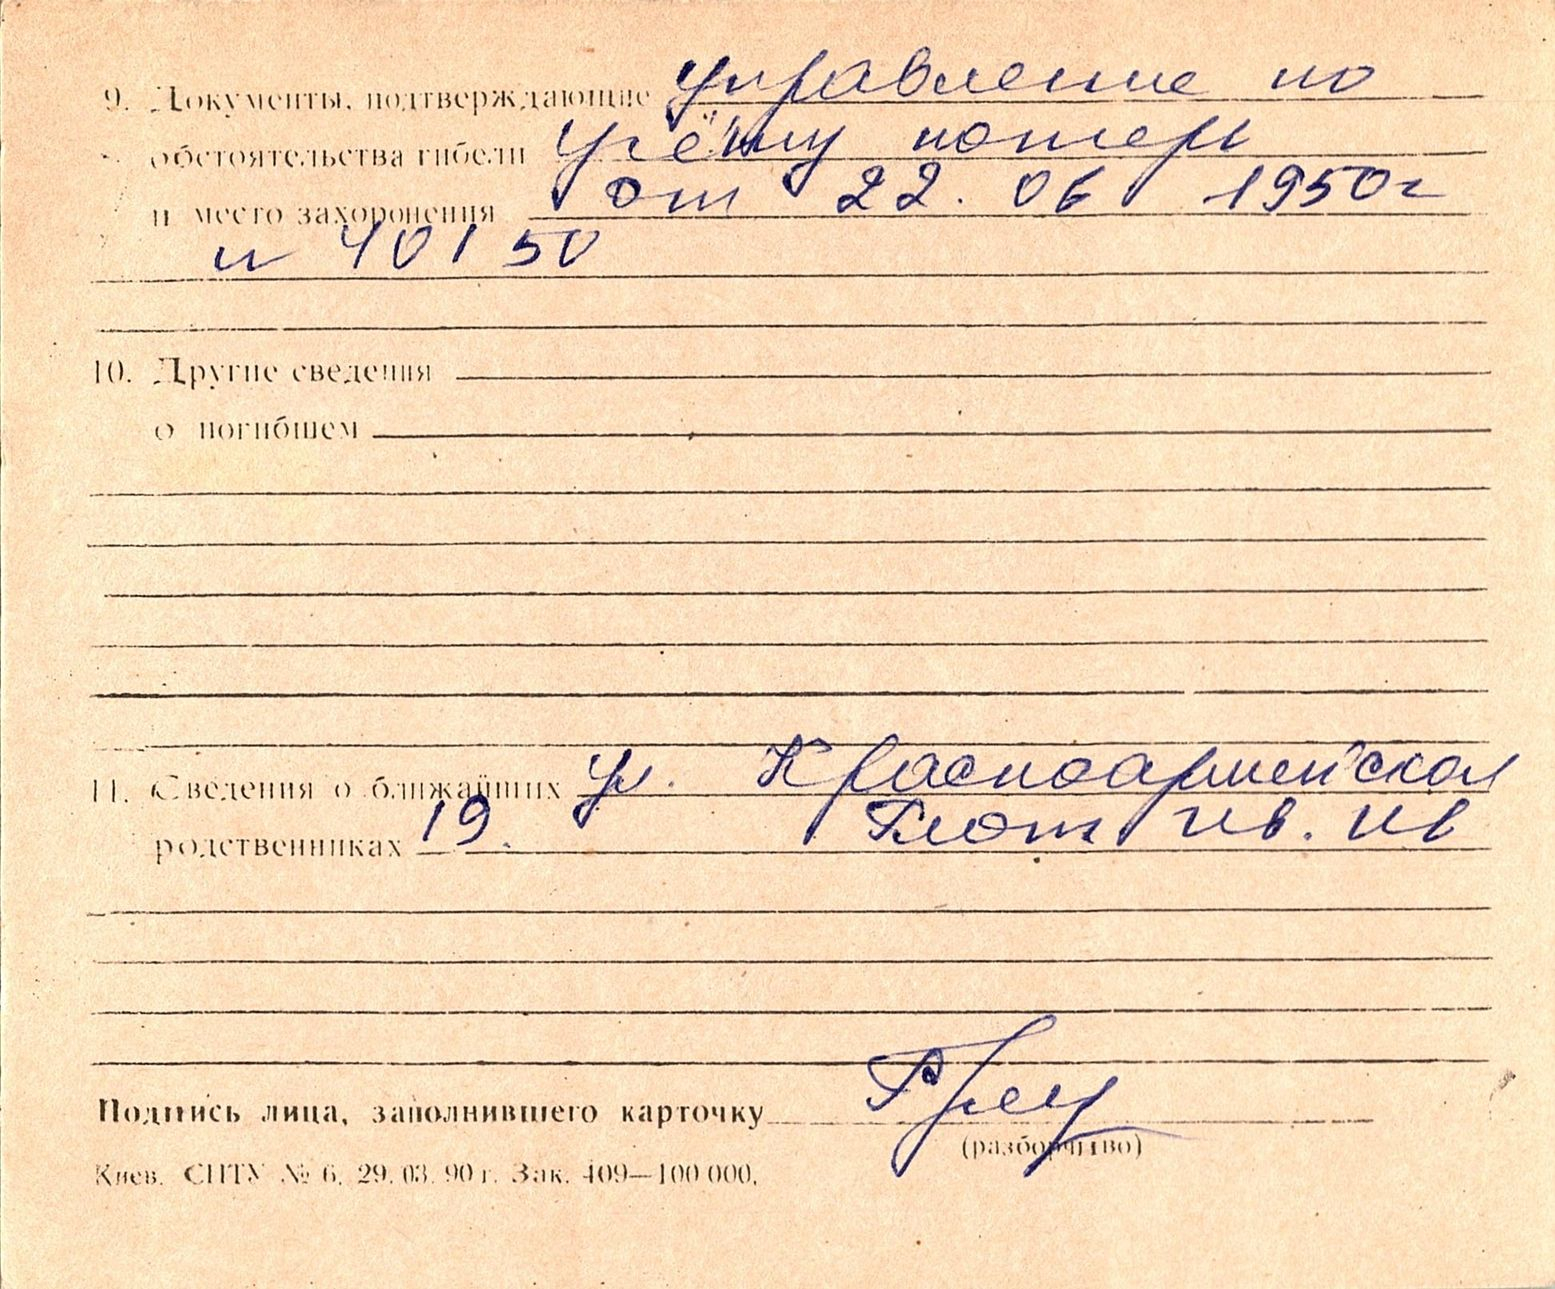 9. Документы, подтверждающие управление по
обстоятельства гибели учёту потерь
и место захоронения от 22.06 1950г
н 40150
10. Другие сведения
о погибшем
11. Сведения о ближайших ул. Красноармейская
родственниках 19. Глот Ив. Ив
Подпись лица, заполнившего карточку
(разборчиво)
Киев. СПТУ № 6. 29. 03. 90 г. Зак. 409—100 000.